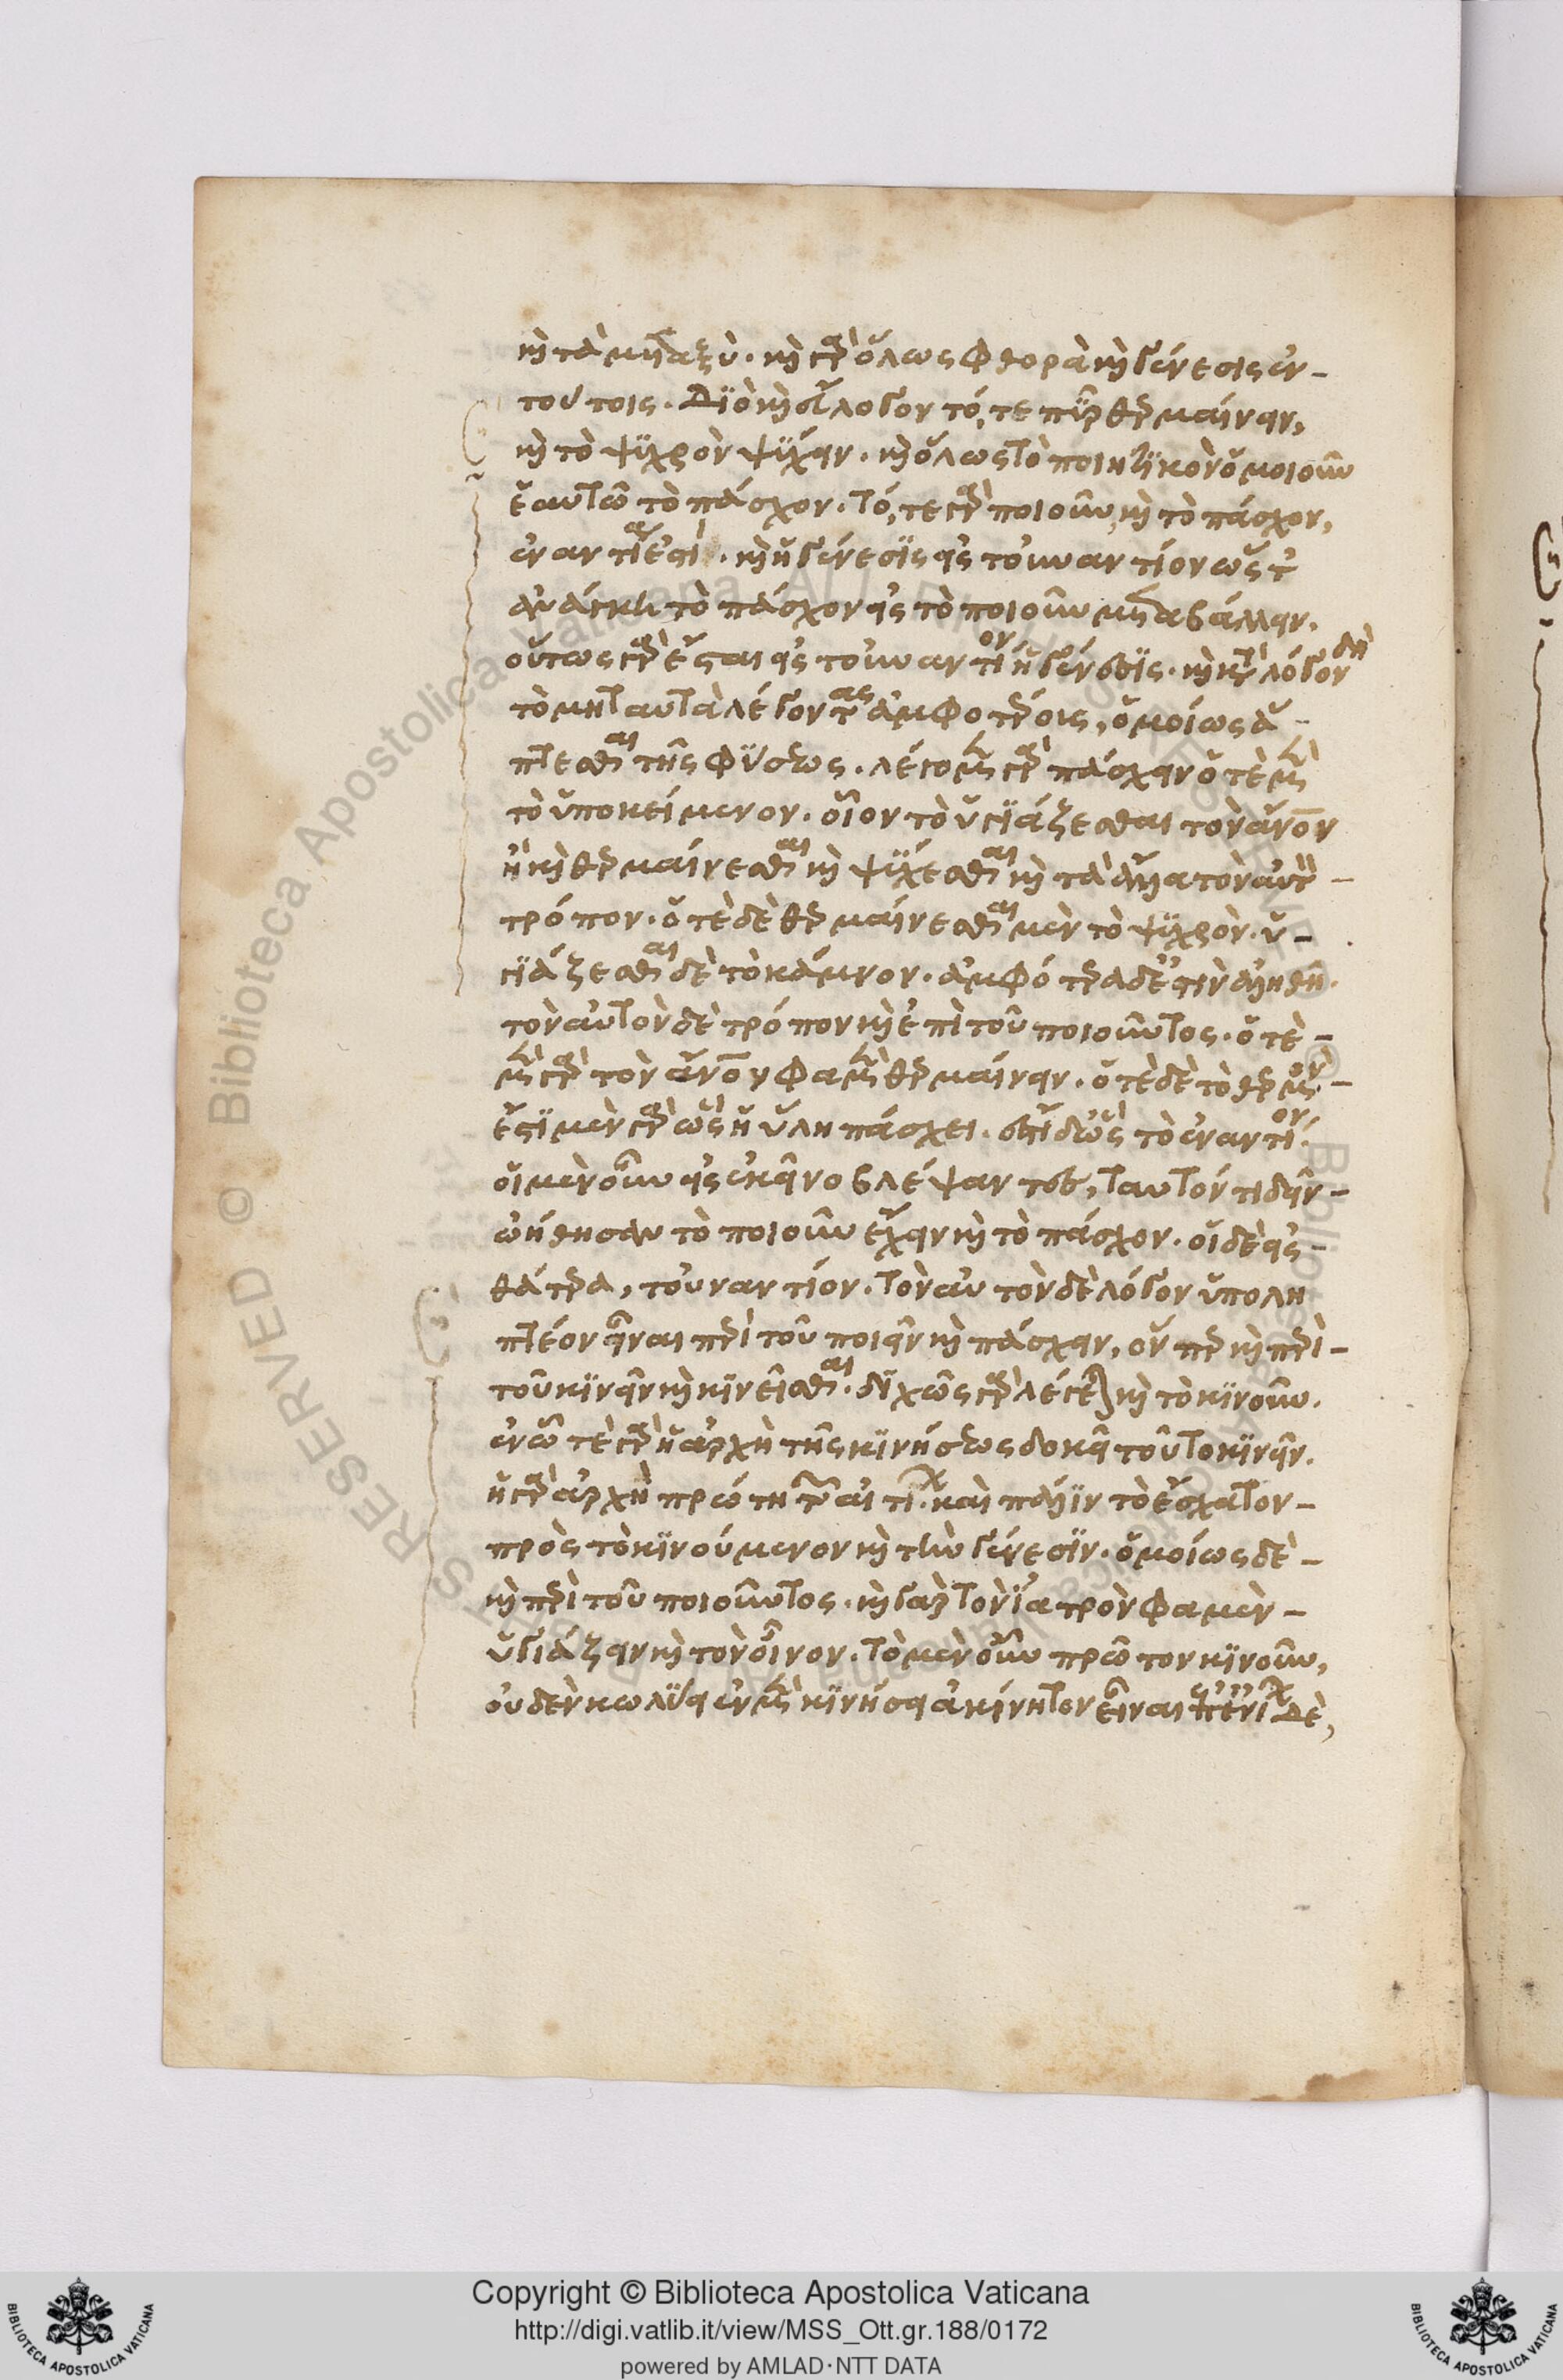 καὶ τὰ μεταξὺ· καὶ γὰρ ὅλως φθορὰ καὶ γένεσις ἐν–
τούτοις. Διὸ καὶ εὔλογον τό, τε πῦρ θερμαίνειν,
καὶ τὸ ψυχρὸν ψύχειν. καὶ ὅλως τὸ ποιητικὸν ὁμοιοῦν
ἑαυτῶ τὸ πάσχον. τό, τε γὰρ ποιοῦν, καὶ τὸ πάσχον,
ἐναντία ἐστὶ. καὶ ἡ γένεσις εἰς τοὐναντίον ὥστ
ἀνάγκη τὸ πάσχον εἰς τὸ ποιοῦν μεταβάλλειν.
οὕτως γὰρ ἔσται εἰς τοὐναντίον ἡ γένεσις. καὶ κατὰ λόγον δὴ
τὸ μὴ ταυτὰ λέγοντας ἀμφοτέροις, ὁμοίως ἅ–
πτεσθαι τῆς φύσεως. λέγομεν γὰρ πάσχειν ὁτὲ μὲν
τὸ ὑποκείμενον. οἷον τὸ ὑγιάζεσθαι τὸν ἄνον
ἢ καὶ θερμαίνεσθαι καὶ ψύχεσθαι καὶ τὰ ἄλλα τὸν αὐτὸν–
τρόπον. ὁτὲ δὲ θερμαίνεσθαι μὲν τὸ ψυχρὸν. ὑ–
γιάζεσθαι δὲ τὸ κάμνον. ἀμφότερα δέ ἐστιν ἀληθῆ.
τὸν αὐτὸν δὲ τρόπον καὶ ἐπὶ τοῦ ποιοῦντος. ὁτὲ–
μὲν γὰρ τὸν ἄνον φαμὲν θερμαίνειν. ὁτὲ δὲ τὸ θερμὸν–
ἔστι μὲν γὰρ ὡς ἡ ὕλη πάσχει. ἔστι δ' ὡς τὸ ἐναντίον.
οἱ μὲν οὖν εἰς ἐκεῖνο βλέψαντες, ταυτόν τι δεῖν–
ὠήθησαν τὸ ποιοῦν ἔχειν καὶ τὸ πάσχον. οἱ δὲ εἰς–
θάτερα, τοὐναντίον. τὸν αὐτὸν δὲ λόγον ὑπολη
πτέον εἶναι περὶ τοῦ ποιεῖν καὶ πάσχειν, ὅνπερ καὶ περὶ–
τοῦ κινεῖν καὶ κινεῖσθαι. διχῶς γὰρ λέγεται καὶ τὸ κινοῦν.
ἐν ᾧ τε γὰρ ἡ ἀρχὴ τῆς κινήσεως δοκεῖ τοῦτο κινεῖν.
ἡ γὰρ ἀρχὴ πρώτη τῶν αἰτίων. καὶ πάλιν τὸ ἔσχατον–
πρὸς τὸ κινούμενον καὶ τὴν γένεσιν. ὁμοίως δὲ–
καὶ περὶ τοῦ ποιοῦντος. καὶ γὰρ τὸν ἰατρὸν φαμὲν–
ὑγιάζειν καὶ τὸν οἶνον. τὸ μὲν οὖν πρῶτον κινοῦν,
οὐδὲν κωλύει ἐν μὲν κινήσει ἀκίνητον εἶναι ἐπενίων δὲ,
© Biblioteca Apostolica Vaticana
Copyright © Biblioteca Apostolica Vaticana
http://digi.vatlib.it/view/MSS_Ott.gr.188/0172
powered by AMLAD·NTT DATA
BIBLIOTECA APOSTOLICA VATICANA
BIBLIOTECA APOSTOLICA VATICANA